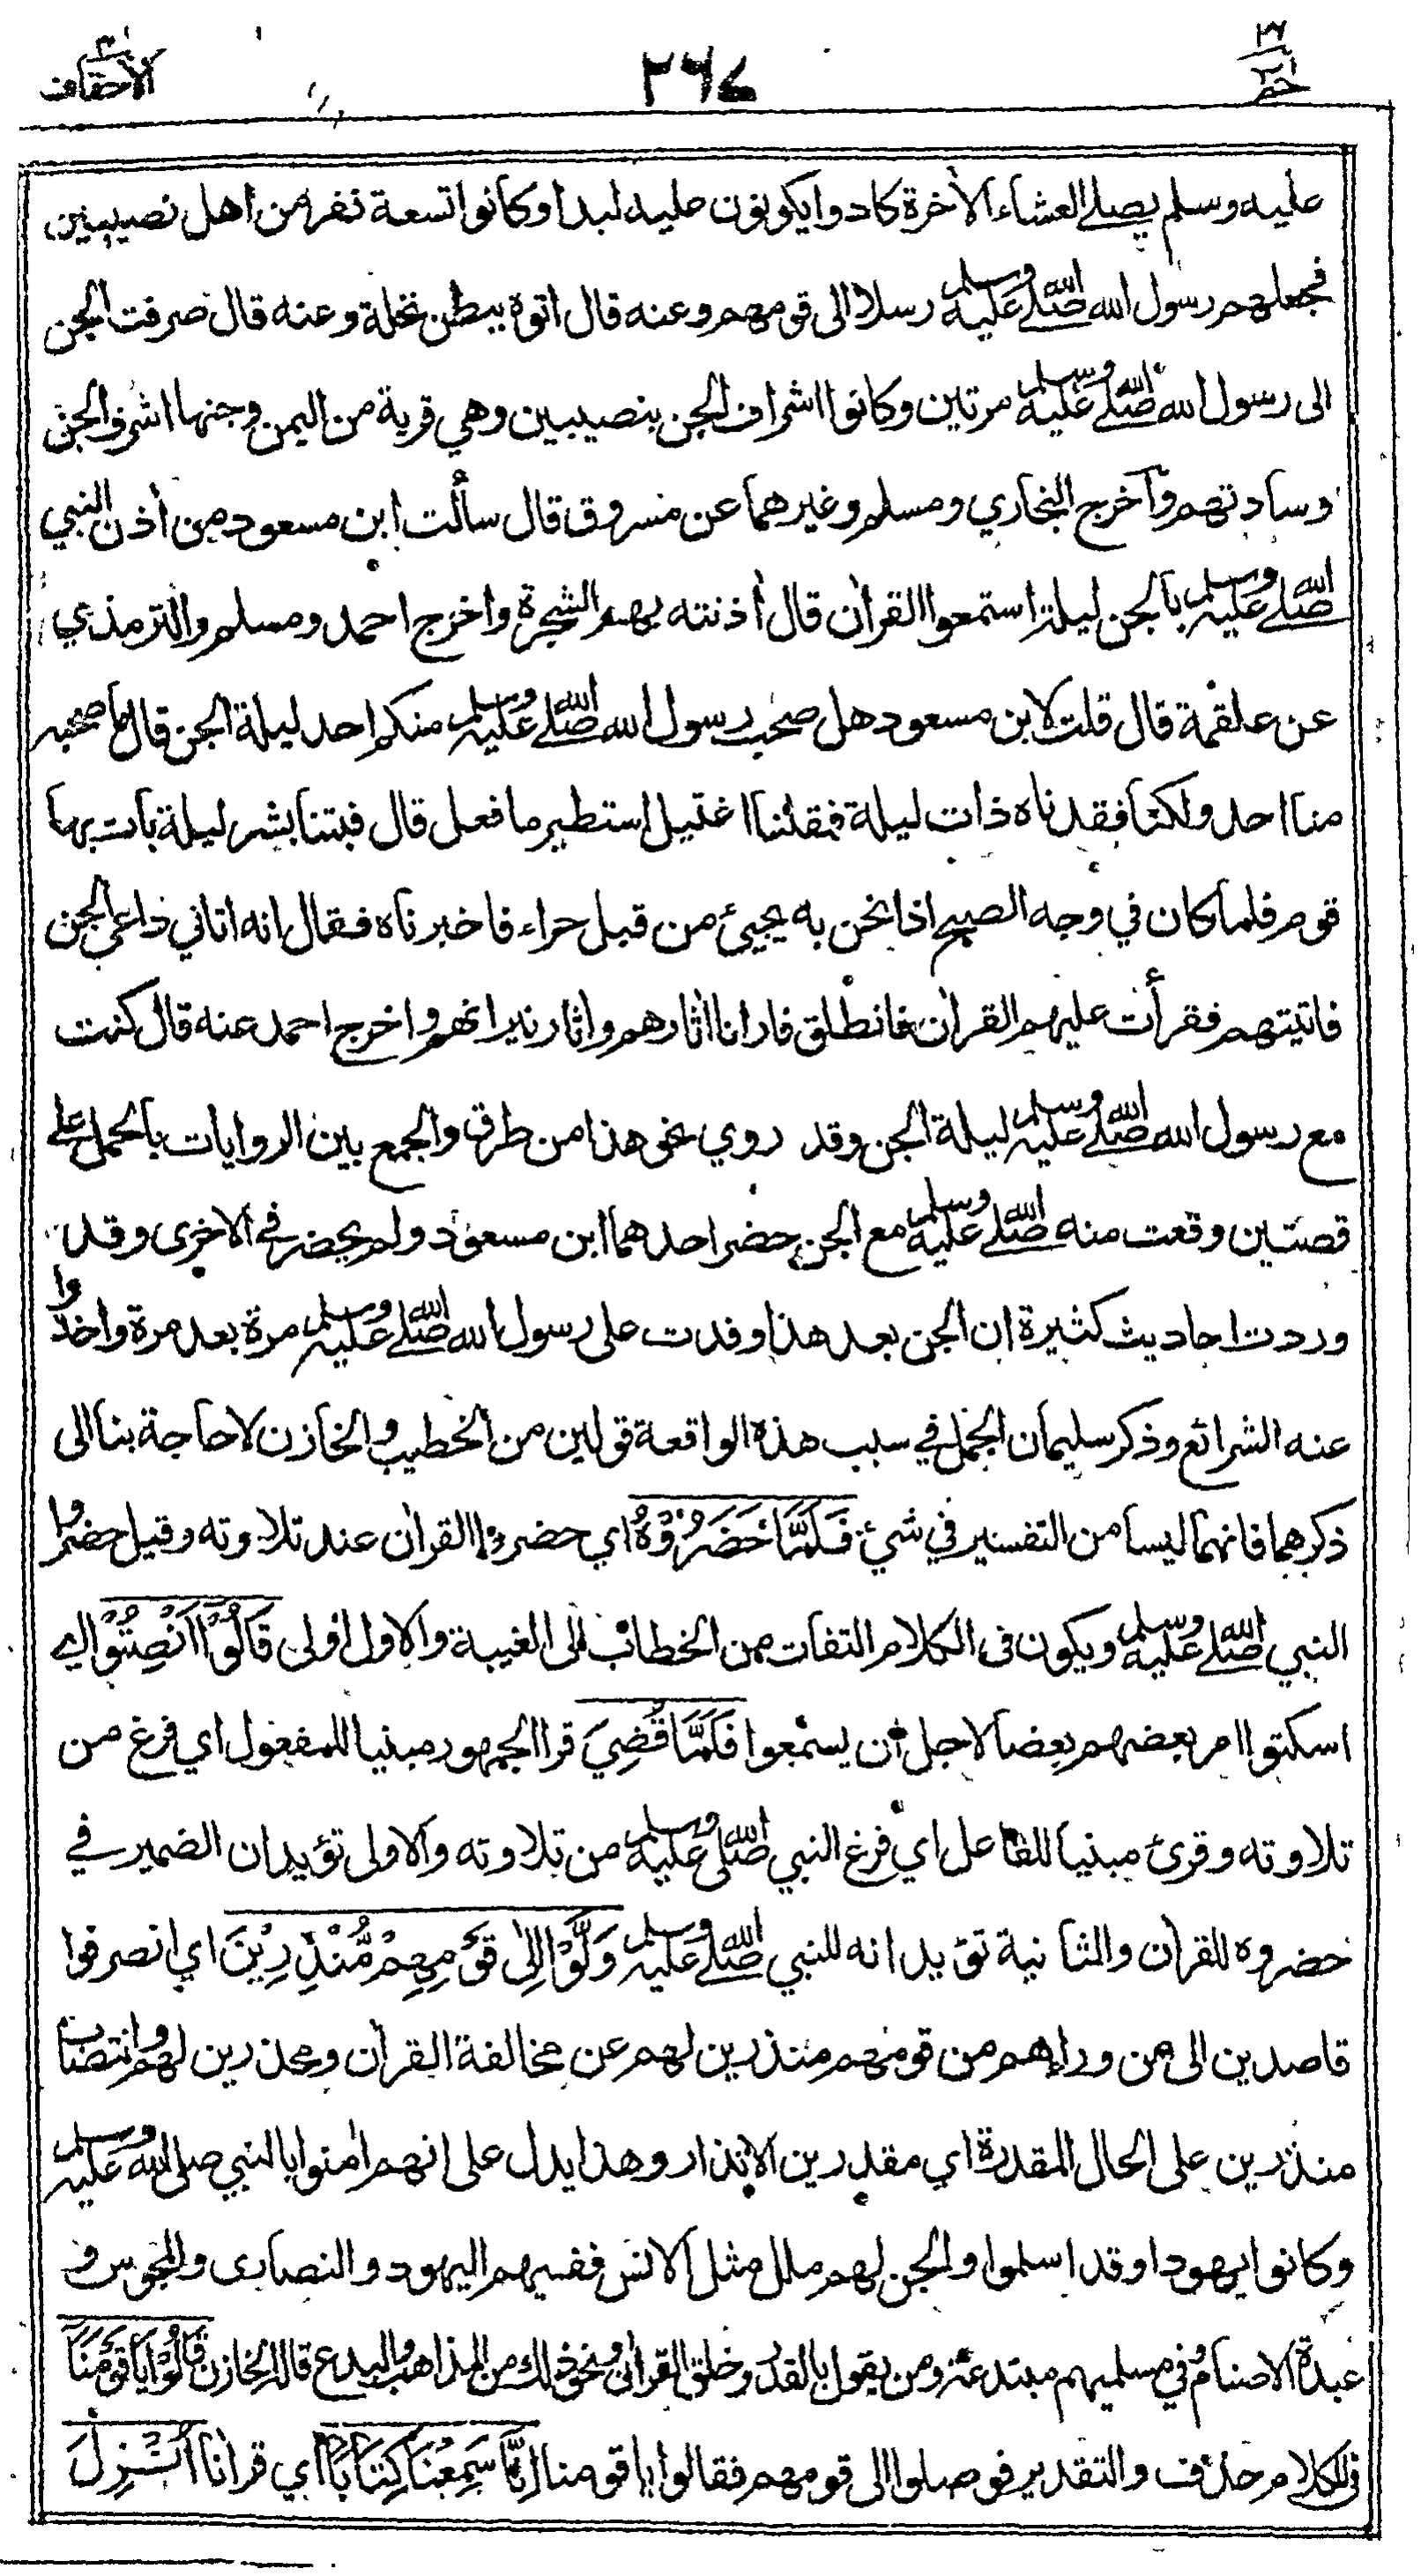 حم ٢٦
٢٦٧
الأحقاف
عليه وسلم يصلي العشاء الأخرة كادوا يكونون عليه لبدا وكانوا تسعة نفر من اهل نصيبين
فجعلهم رسول الله صلى الله عليه وسلم رسلا الى قومهم وعنه قال اتوه ببطن نخلة وعنه قال صرفت الجن
الى رسول الله صلى الله عليه وسلم مرتين وكانوا اشراف الجن بنصيبين وهي قرية من اليمن وجنها اشرف الجن
وسادتهم وآخرج البخاري ومسلم وغيرهما عن مسروق قال سألت ابن مسعود من أذن النبي
صلى الله عليه وسلم بالجن ليلة استمعوا القرآن قال أذنته بهم الشجرة واخرج احمد ومسلم والترمذي
عن علقمة قال قلت لابن مسعود هل صحب رسول الله صلى الله عليه وسلم منكم احد ليلة الجن قال ما صحبه
منا احد ولكنا فقدناه ذات ليلة فقلنا اغتيل استطير ما فعل قال فبتنا بشر ليلة بات بها
قوم فلما كان في وجه الصبح اذا نحن به يجيئ من قبل حراء فاخبرناه فقال انه اتاني داعي الجن
فاتيتهم فقرأت عليهم القرآن فانطلق فارانا اثارهم واثار نيرانهم واخرج احمد عنه قال كنت
مع رسول الله صلى الله عليه وسلم ليلة الجن وقد روي نحو هذا من طرق والجمع بين الروايات بالحمل على
قصتين وقعت منه صلى الله عليه وسلم مع الجن حضر احدهما ابن مسعود ولم يحضر في الاخرى وقد
وردت احاديث كثيرة ان الجن بعد هذا وفدت على رسول الله صلى الله عليه وسلم مرة بعد مرة واخذوا
عنه الشرائع وذكر سليمان الجمل في سبب هذه الواقعة قولين من الخطيب والخازن لا حاجة بنا الى
ذكرهما فانهما ليسا من التفسير في شيئ فَلَمَّا حَضَرُوْهُ اي حضروا القرآن عند تلاوته وقيل حضروا
النبي صلى الله عليه وسلم ويكون في الكلام التفات من الخطاب الى الغيبة والاول اولى قَالُوْا اَنْصِتُوْا اي
اسكتوا امر بعضهم بعضا لاجل ان يستمعوا فَلَمَّا قُضِيَ قرا الجمهور مبنيا للمفعول اي فرغ من
تلاوته وقرئ مبنيا للفاعل اي فرغ النبي صلى الله عليه وسلم من تلاوته والاولى تؤيد ان الضمير في
حضروه للقرآن والثانية تؤيد انه للنبي صلى الله عليه وسلم وَلَّوْا اِلٰى قَوْمِهِمْ مُّنْذِرِيْنَ اي انصرفوا
قاصدين الى من وراءهم من قومهم منذرين لهم عن مخالفة القرآن ومحذرين لهم وانتصاب
منذرين على الحال المقدرة اي مقدرين الانذار وهذا يدل على انهم امنوا بالنبي صلى الله عليه وسلم
وكانوا يهودا وقد اسلموا والجن لهم ملل مثل الانس ففيهم اليهود والنصارى والمجوس و
عبدة الاصنام وفي مسلميهم مبتدعة ومن يقول بالقدر وخلق القرآن ونحو ذلك من المذاهب والبدع قاله الخازن قَالُوْا يَا قَوْمَنَا
في الكلام حذف والتقدير فوصلوا الى قومهم فقالوا يا قومنا اِنَّا سَمِعْنَا كِتَابًا اي قرانا اُنْزِلَ